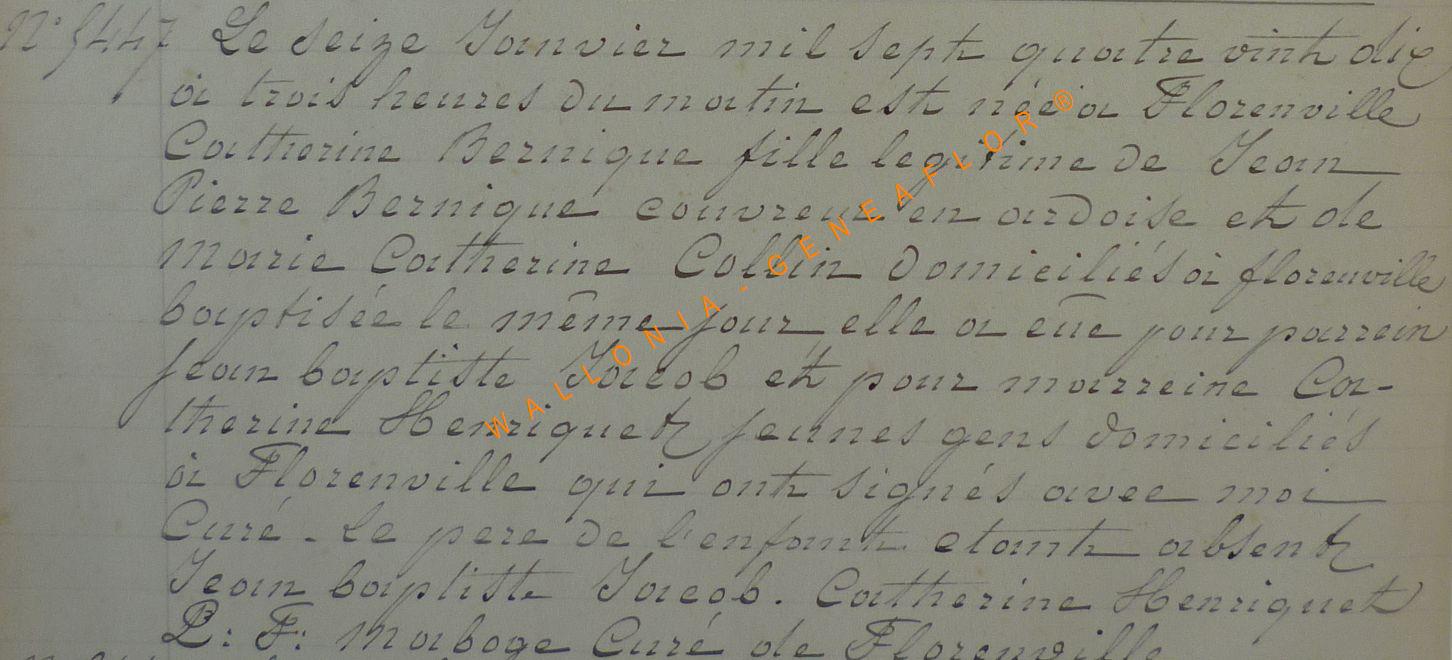 N° 5447 Le seize Janvier mil sept quatre vint dix
à trois heures du matin est née à Florenville
Catherine Bernique fille legitime de Jean
Pierre Bernique couvreur en ardoise et de
Marie Catherine Collin domiciliés à florenville
baptisée le même jour elle a eüe pour parrein
jean baptiste Jacob et pour marreine Ca-
therine Henriquet jeunes gens domiciliés
à Florenville qui ont signés avec moi
Curé - Le pere de l'enfant etant absent
Jean baptiste Jacob. Catherine Henriquet
P: F: Maboge Curé de Florenville
WALLONIA - GENEAFLOR ®